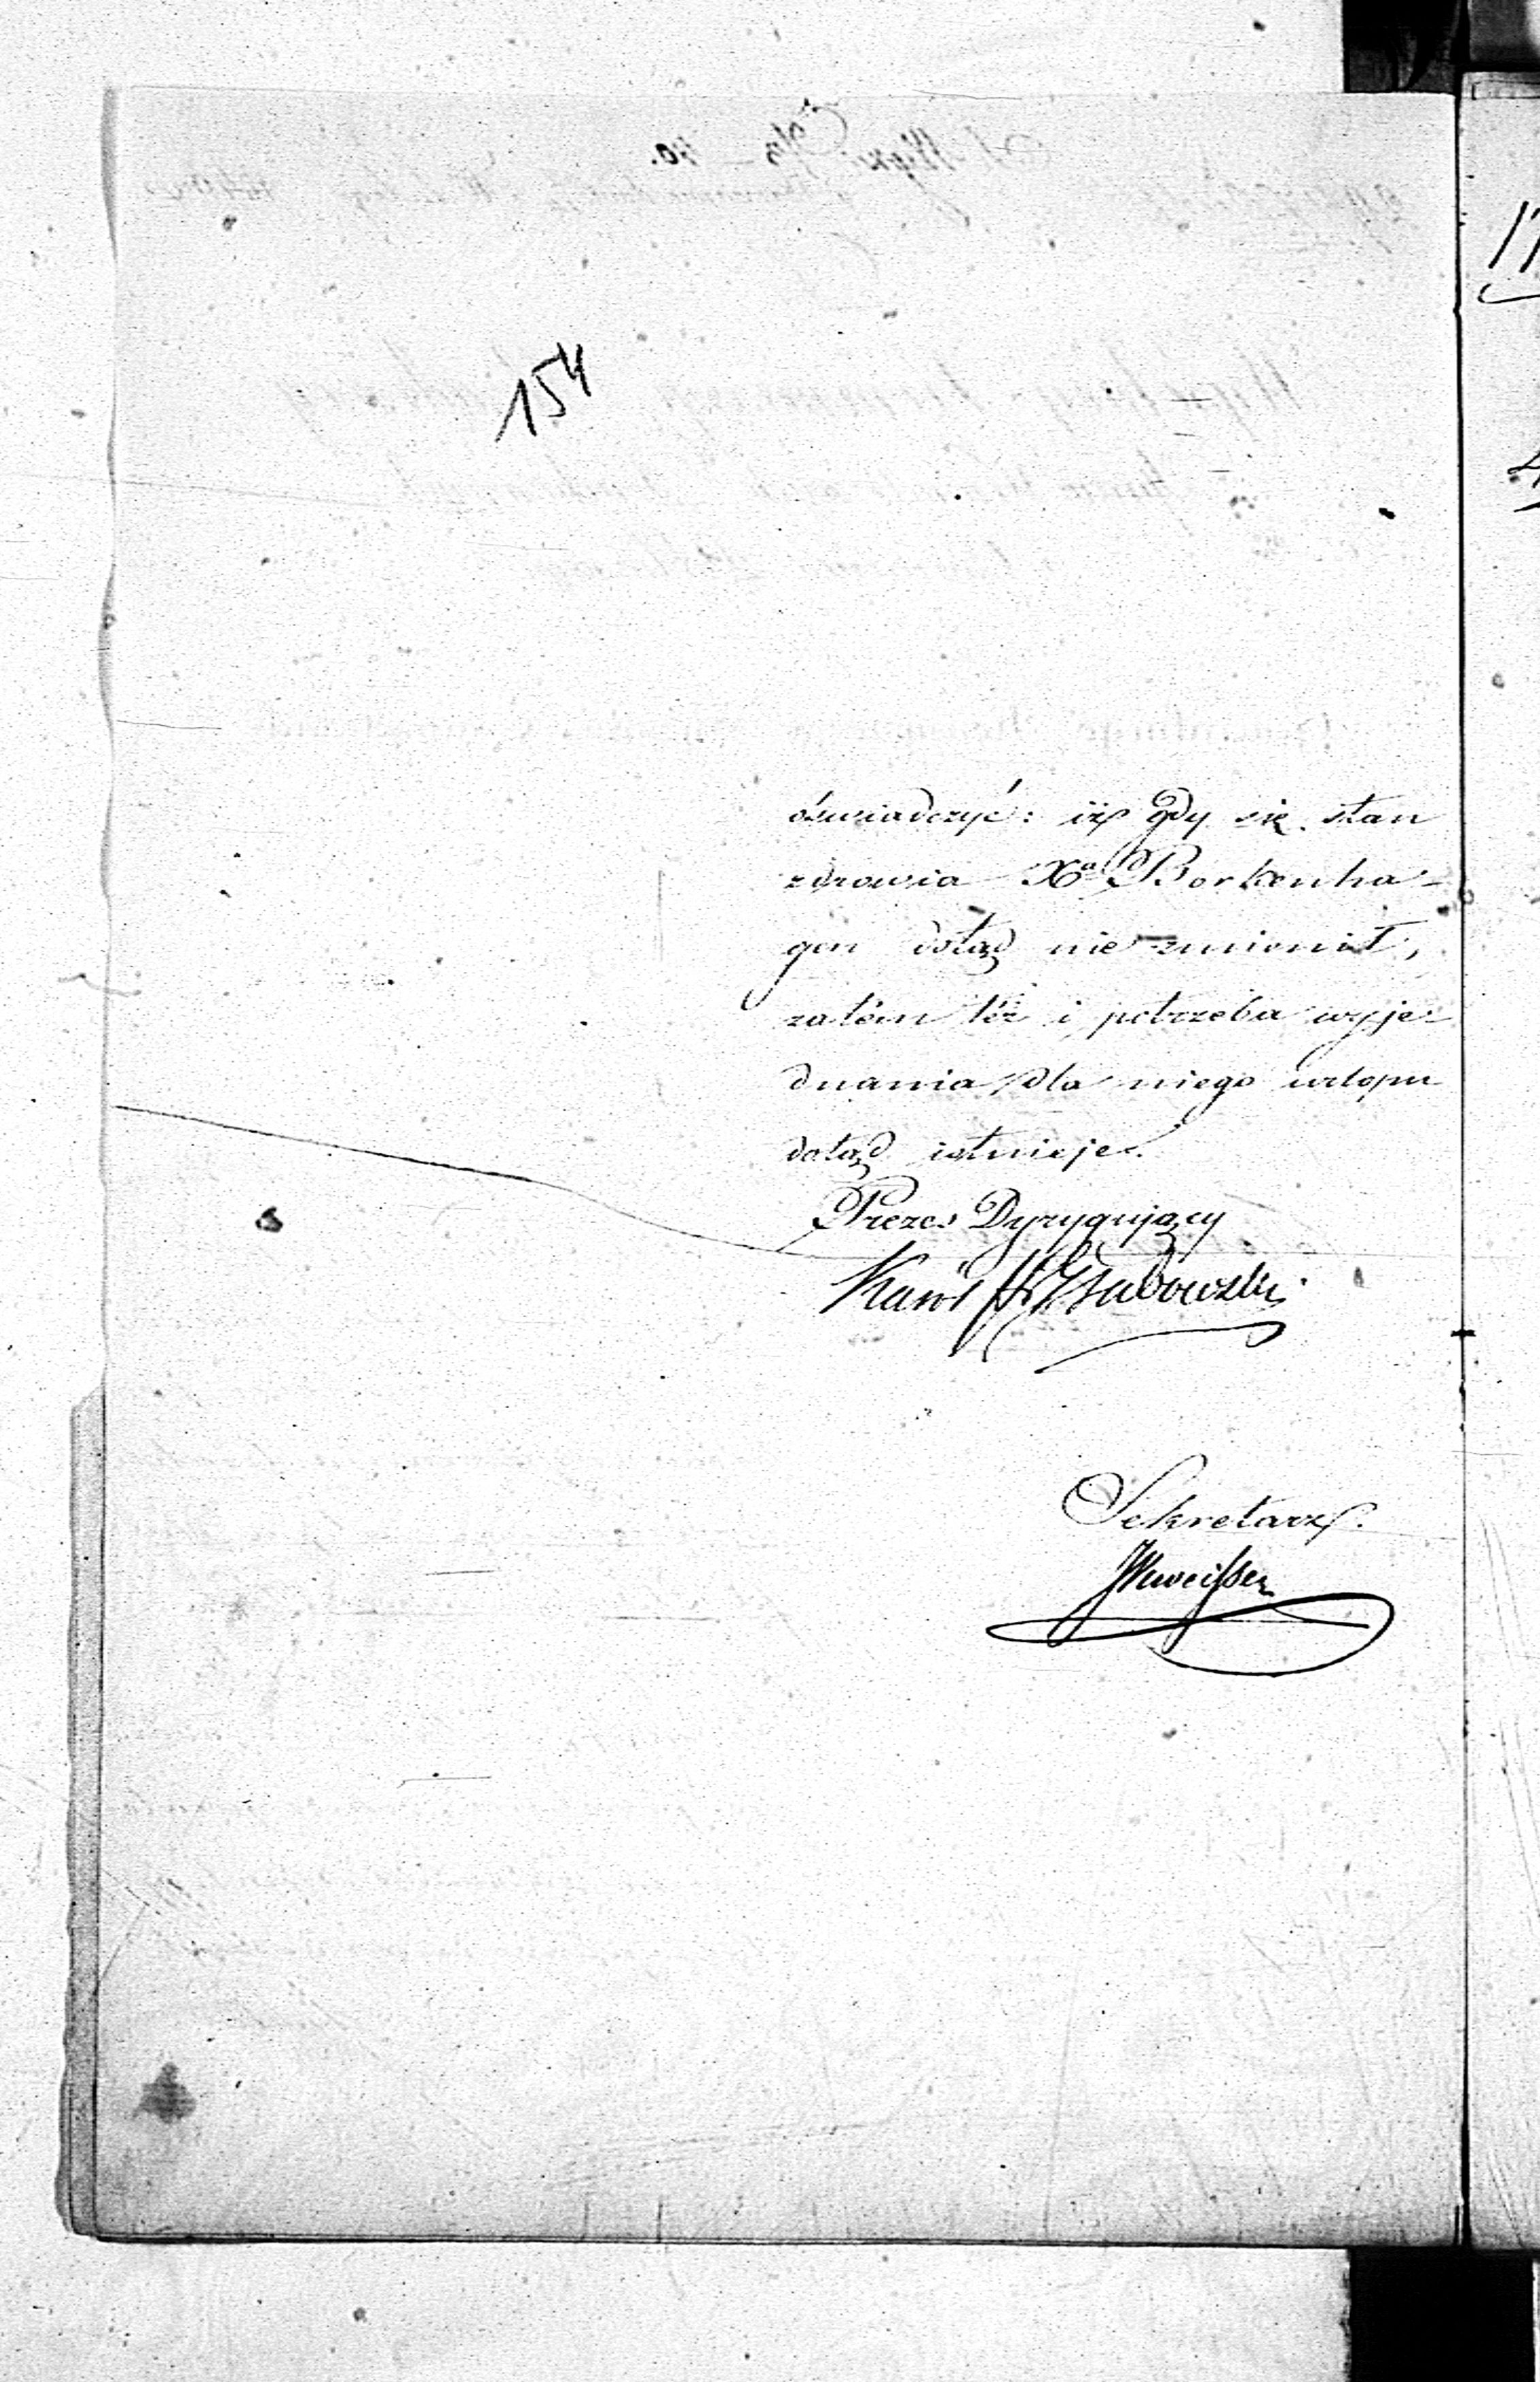 154
óświadczyć: iż gdy się stan
zdrowia Xa Borkenha-
gen dotąd nie zmienił,
zatém téż i potrzeba wyje-
dnania dla niego urlopu
dotąd istnieje.
Prezes Dyrygujący
Sekretarz.